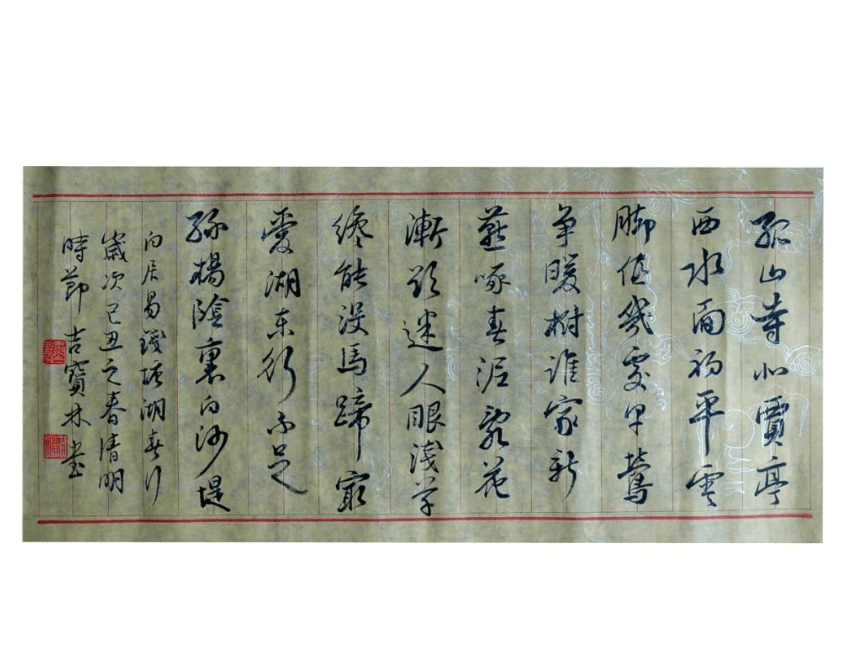 孤山寺北賈亭
西水面初平雲
脚低幾處早鶯
争暖樹誰家新
燕啄春泥亂花
漸欲迷人眼淺草
纔能沒馬蹄最
愛湖東行不足
緑楊陰裏白沙堤
白居易錢塘湖春行
歲次己丑之春清明
時節吉寶林書